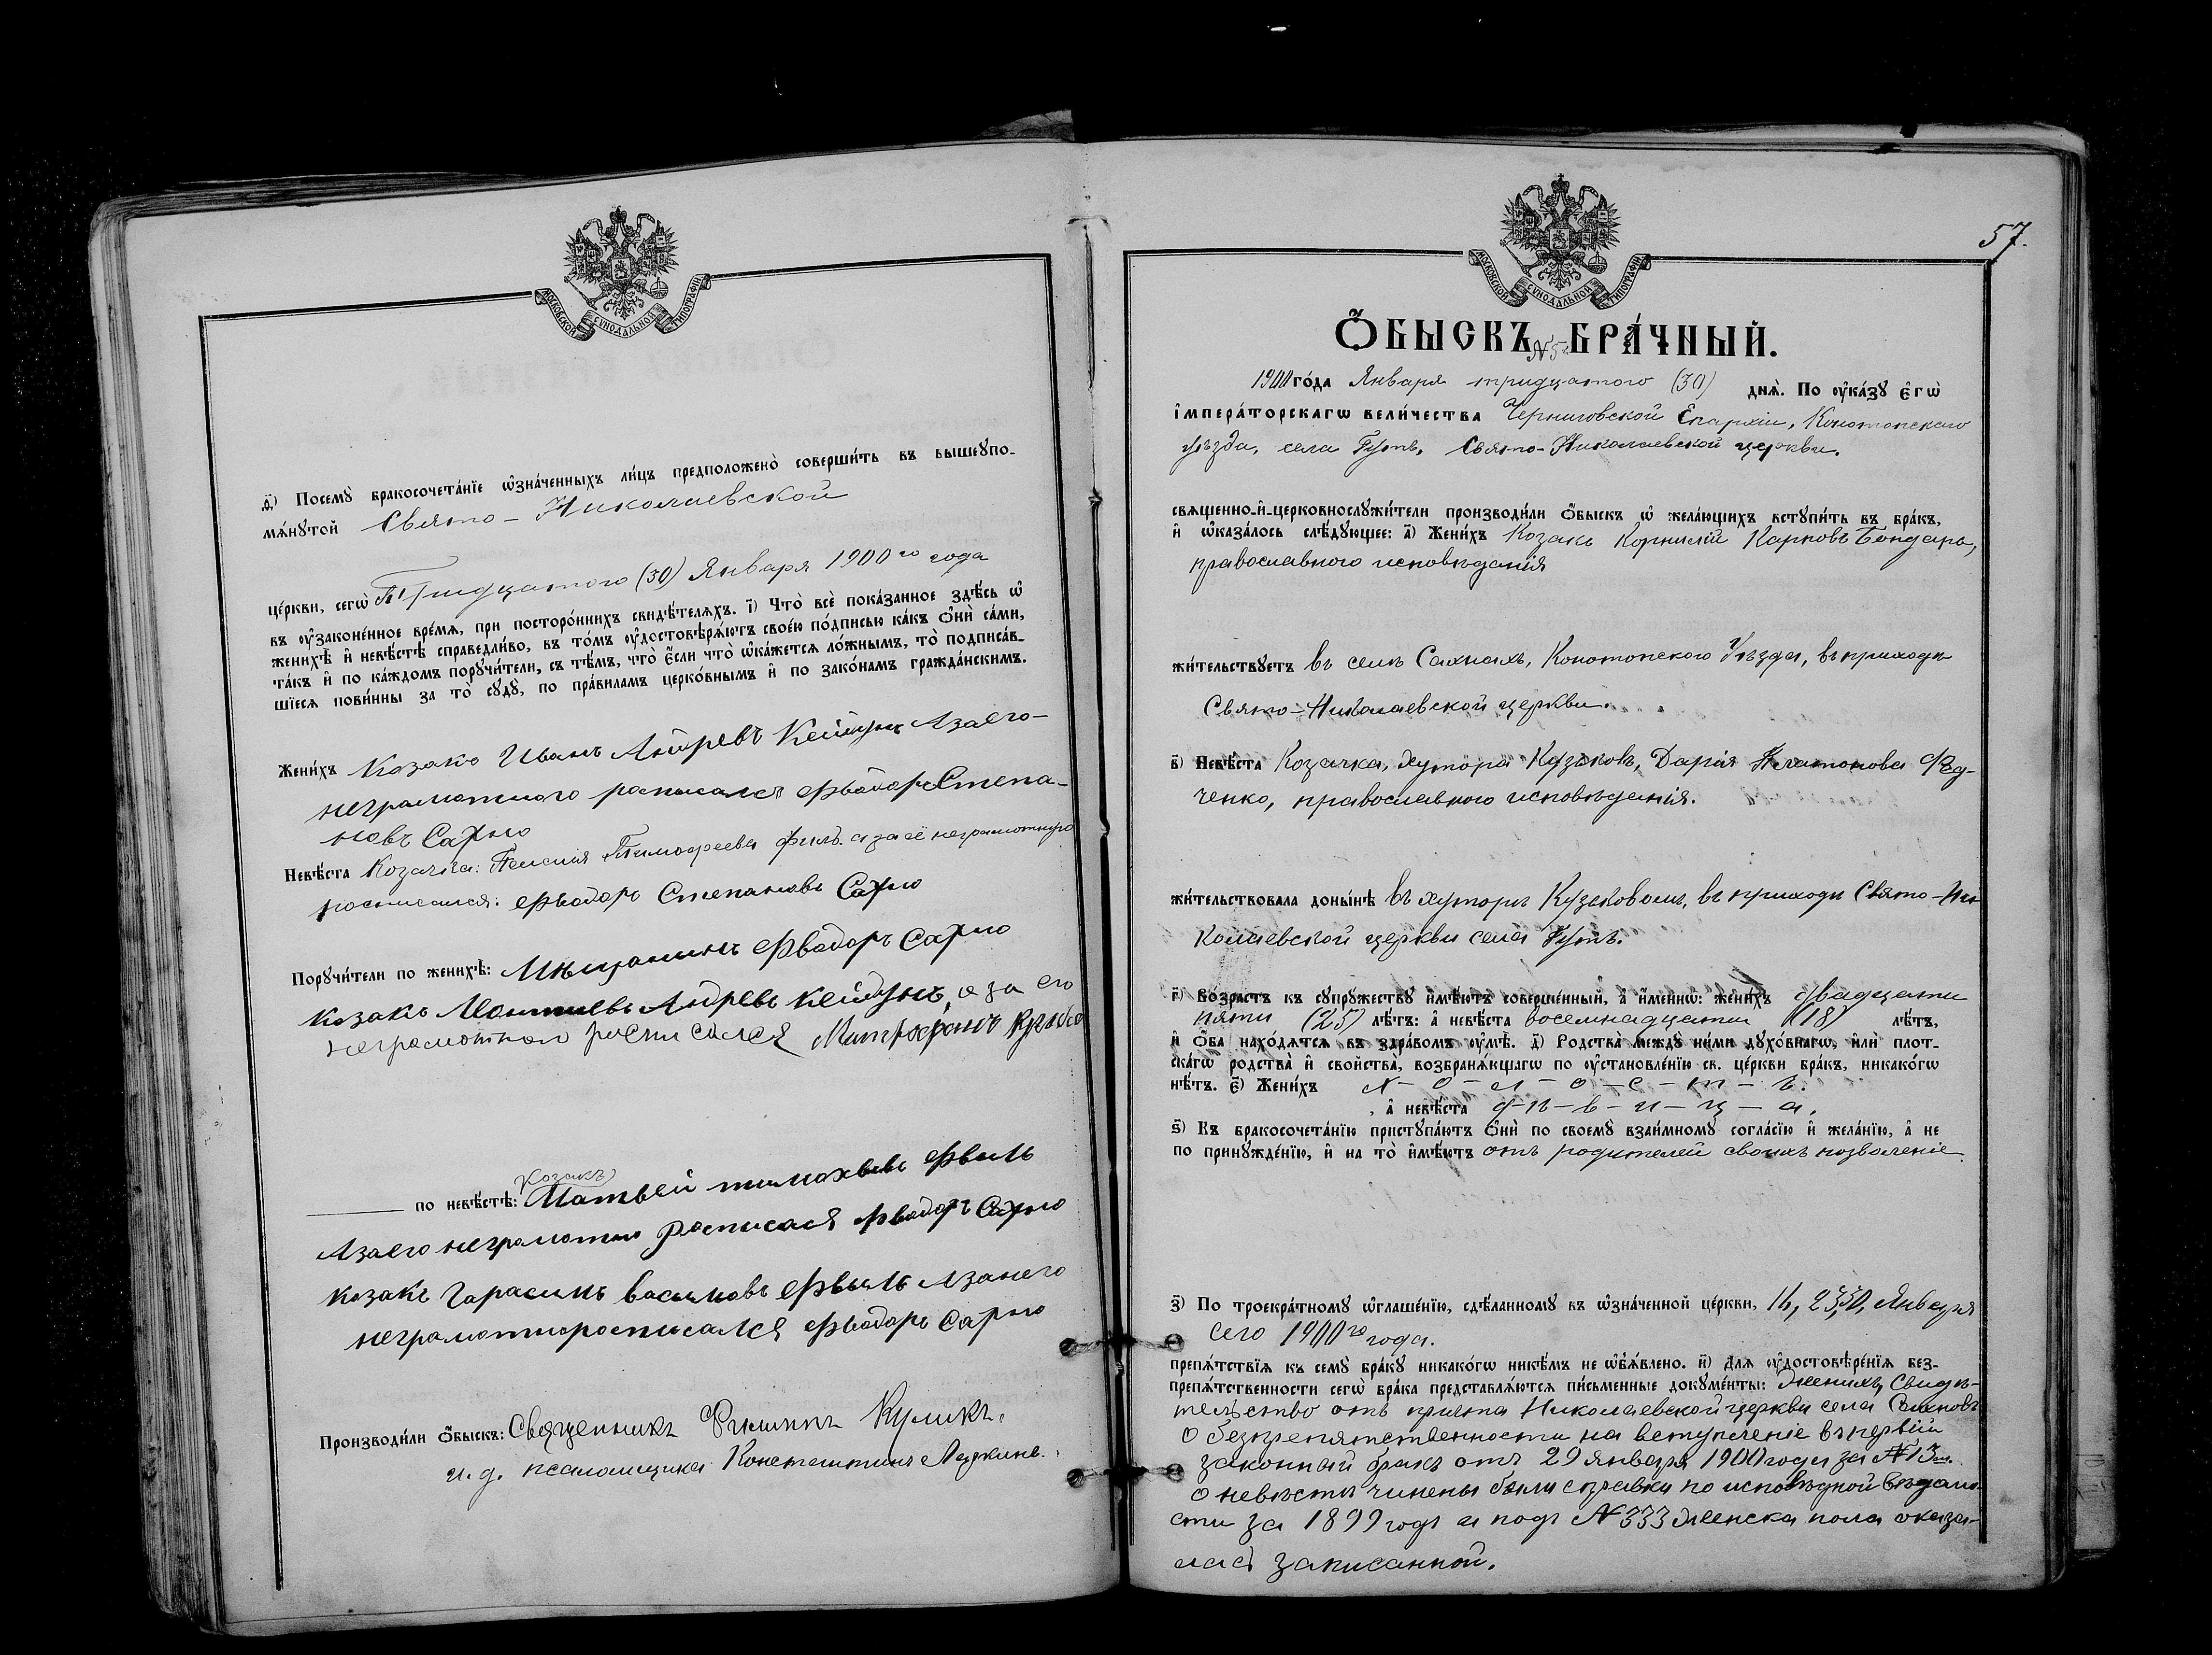 МОСКОВСКОЙ СѴНОДАЛЬНОЙ ТИПОГРАФІИ
Посемꙋ̀ бракосочета́нїе ѡ҆зна́ченныхъ ли́цъ предположено̀ соверши́ть въ вышеꙋпо-
мѧ́нꙋтой Свято-Николаевской
це́ркви, сегѡ̀ Тридцатого (30) Января 1900го года
въ ᲂу҆зако́ненное вре́мѧ, при посторо́ннихъ свидѣ́телѧхъ. і҃) Что̀ всѐ пока́занное здѣ́сь ѡ҆
женихѣ̀ и҆ невѣ́стѣ справедли́во, въ то́мъ ᲂу҆достовѣрѧ́ютъ свое́ю по́дписью ка́къ ѻ҆нѝ са́ми,
та́къ и҆ по ка́ждомъ порꙋчи́тели, съ тѣ́мъ, что̀ є҆́сли что̀ ѡ҆ка́жетсѧ ло́жнымъ, то̀ подписа́в-
шїесѧ пови́нны за то̀ сꙋдꙋ̀, по пра́виламъ церко́внымъ и҆ по зако́намъ гражда́нскимъ.
Жени́хъ Козакъ Иванъ Андревъ Кейдунъ Азаего-
неграмотного росписался Фѣодоръ Степа-
новъ Сахно
Невѣ́ста Козачка: Тимофеева Филь. а за её неграмотную
росписался: Фѣодоръ Степановъ Сахно
Порꙋчи́тели по женихѣ̀: Мѣщанинъ Фѣодоръ Сахно
козакъ Андревъ Кейдунъ, а за его
неграмотнаго росписался Митрофанъ
по невѣ́стѣ: Козакъ Матвей тимохвевъ Фвиль
Азаего неграмотно росписася Фѣодоръ Сахно
козакъ Гарасимъ василювъ Фвиль Азанего
неграмотноросписался Фѣодоръ Сахно
Производи́ли ѻ҆́быскъ: Священникъ Филиппъ Куликъ.
и. д. псаломщика Константинъ
57.
МОСКОВСКОЙ СѴНОДАЛЬНОЙ ТИПОГРАФІИ
Ѻ҆́БЫСКЪ БРА́ЧНЫЙ.
1900 го́да Января тридцатого (30) днѧ̀. По ᲂу҆ка́зꙋ є҆гѡ̀
і҆мпера́торскагѡ вели́чества Черниговской Епархіи, Конотопского
уѣзда, села Гутъ, Свято-Николаевской церкви.
свѧще́нно-и҆-церковнослꙋжи́тели производи́ли ѻ҆́быскъ ѡ҆ жела́ющихъ встꙋпи́ть въ бра́къ,
и҆ ѡ҆каза́лось слѣ́дꙋющее: а҃) Жени́хъ Козакъ Корнилій Карповъ Бондарь,
православного исповѣданія
жи́тельствꙋетъ въ селѣ Сахнахъ, Конотопского Уѣзда, въ приходѣ
Свято-Николаевской церкви.
в҃) Невѣ́ста Козачка, хутора Кузьковъ, Дарія Платонова Фед-
ченко, православного исповѣданія.
жи́тельствовала доны́нѣ въ хуторѣ Кузьковомъ, въ приходѣ Свято-Ни
колаевской церкви села Гутъ.
г҃) Во́зрастъ къ сꙋпрꙋ́жествꙋ и҆мѣ́ютъ соверше́нный, а҆ и҆́меннѡ: жени́хъ двадцати
пяти (25) лѣ́тъ: а҆ невѣ́ста восемнадцати (18) лѣ́тъ,
и҆ ѻ҆́ба нахо́дѧтсѧ въ здра́вомъ ᲂу҆мѣ̀. д҃) Родства̀ междꙋ ни́ми дꙋхо́внагѡ, и҆лѝ плот-
ска́гѡ родства̀ и҆ свойства̀, возбранѧ́ющагѡ по ᲂу҆становле́нїю св. це́ркви бра́къ, никако́гѡ
нѣ́тъ. є҃) Жени́хъ х-о-л-о-с-т-ъ.
, а҆ невѣ́ста д-ѣ-в-и-ц-а.
ѕ҃) Къ бракосочета́нїю пристꙋпа́ютъ ѻ҆нѝ по своемꙋ̀ взаи́мномꙋ согла́сїю и҆ жела́нїю, а҆ не
по принꙋжде́нїю, и҆ на то̀ и҆мѣ́ютъ отъ родителей своихъ позволеніе
з҃) По троекра́тномꙋ ѡ҆глаше́нїю, сдѣ́ланномꙋ въ ѡ҆зна́ченной це́ркви, Января
сего 1900го года.
препѧ́тствїѧ къ семꙋ̀ бра́кꙋ никако́гѡ никѣ́мъ не ѡ҆б̾ѧ́влено. и҃) Для ᲂу҆достовѣре́нїѧ без-
препѧ́тственности сегѡ̀ бра́ка представлѧ́ютсѧ пи́сьменные докꙋме́нты: Женихъ, Свидѣ-
тельство отъ причта Николаевской церкви села Сахновъ
о безпрепятственности на вступленіе въ первый
законный бракъ отъ 29 января 1900 года за №13м.
О невѣстѣ чинены были справки по исповѣдной вѣдомо-
сти за 1899 годъ и подъ №333 женска пола оказа-
лась записанной.